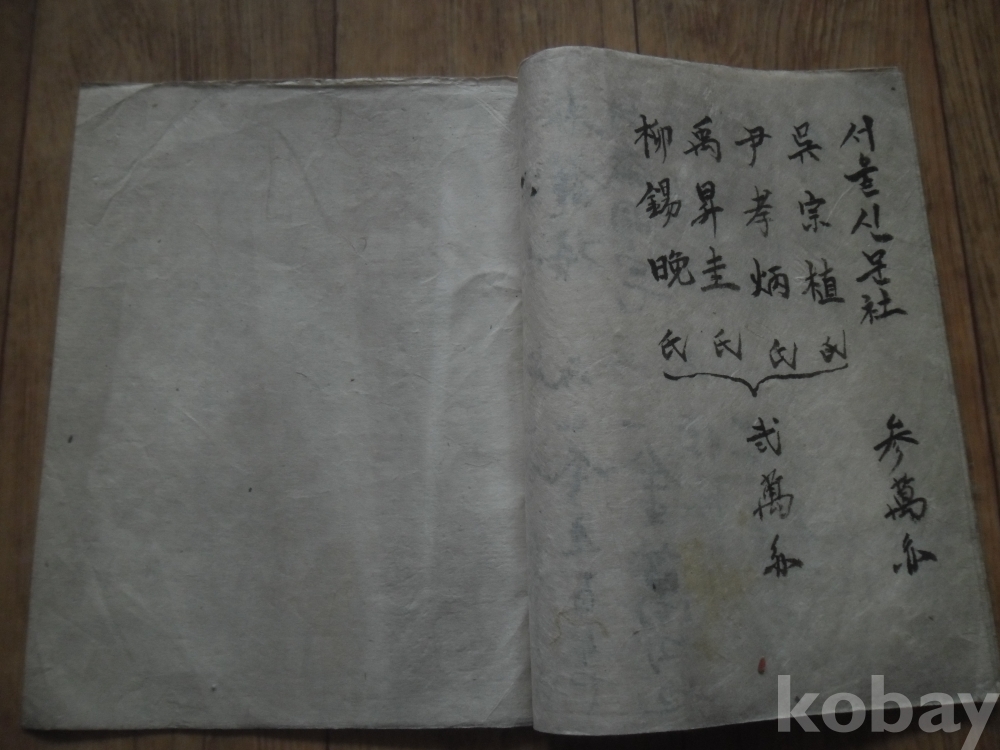 서울신문社 参萬
吳宗植氏
尹孝炳氏
禹昇圭氏
柳錫晚氏
弐萬
kobay